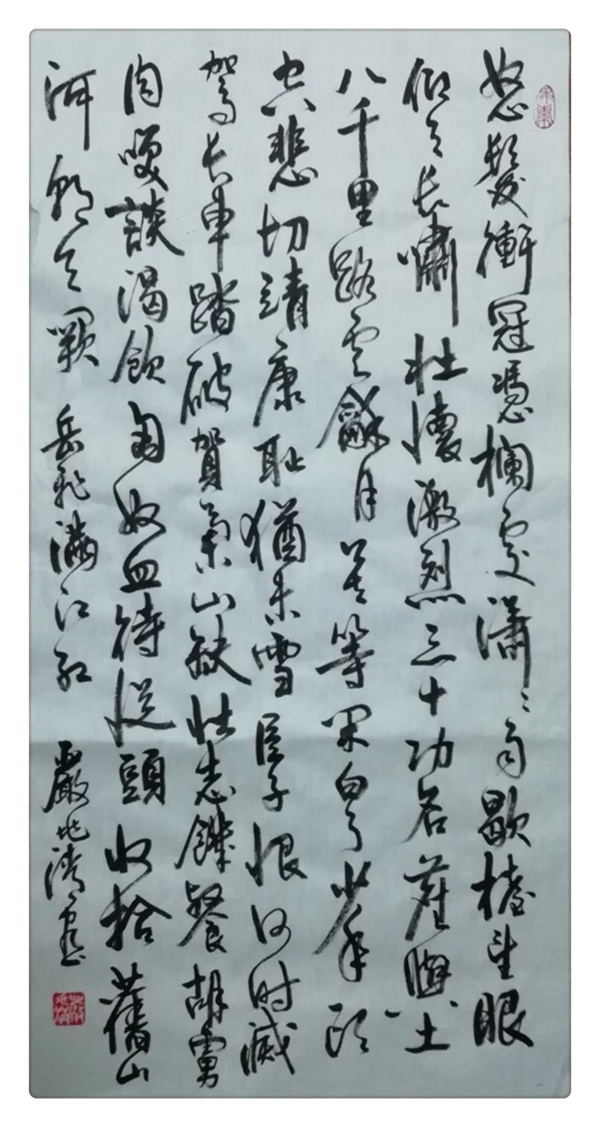 怒髮衝冠憑欄處瀟瀟雨歇擡望眼
仰天長嘯壯懷激烈三十功名塵與土
八千里路雲龢月莫等閑白了少年頭
空悲切靖康恥猶未雪臣子恨何时滅
駕长車踏破賀蘭山缺壯志饑餐胡虜
肉笑談渴飲匈奴血待從頭收拾舊山
河朝天闕 岳飛滿江紅 嚴